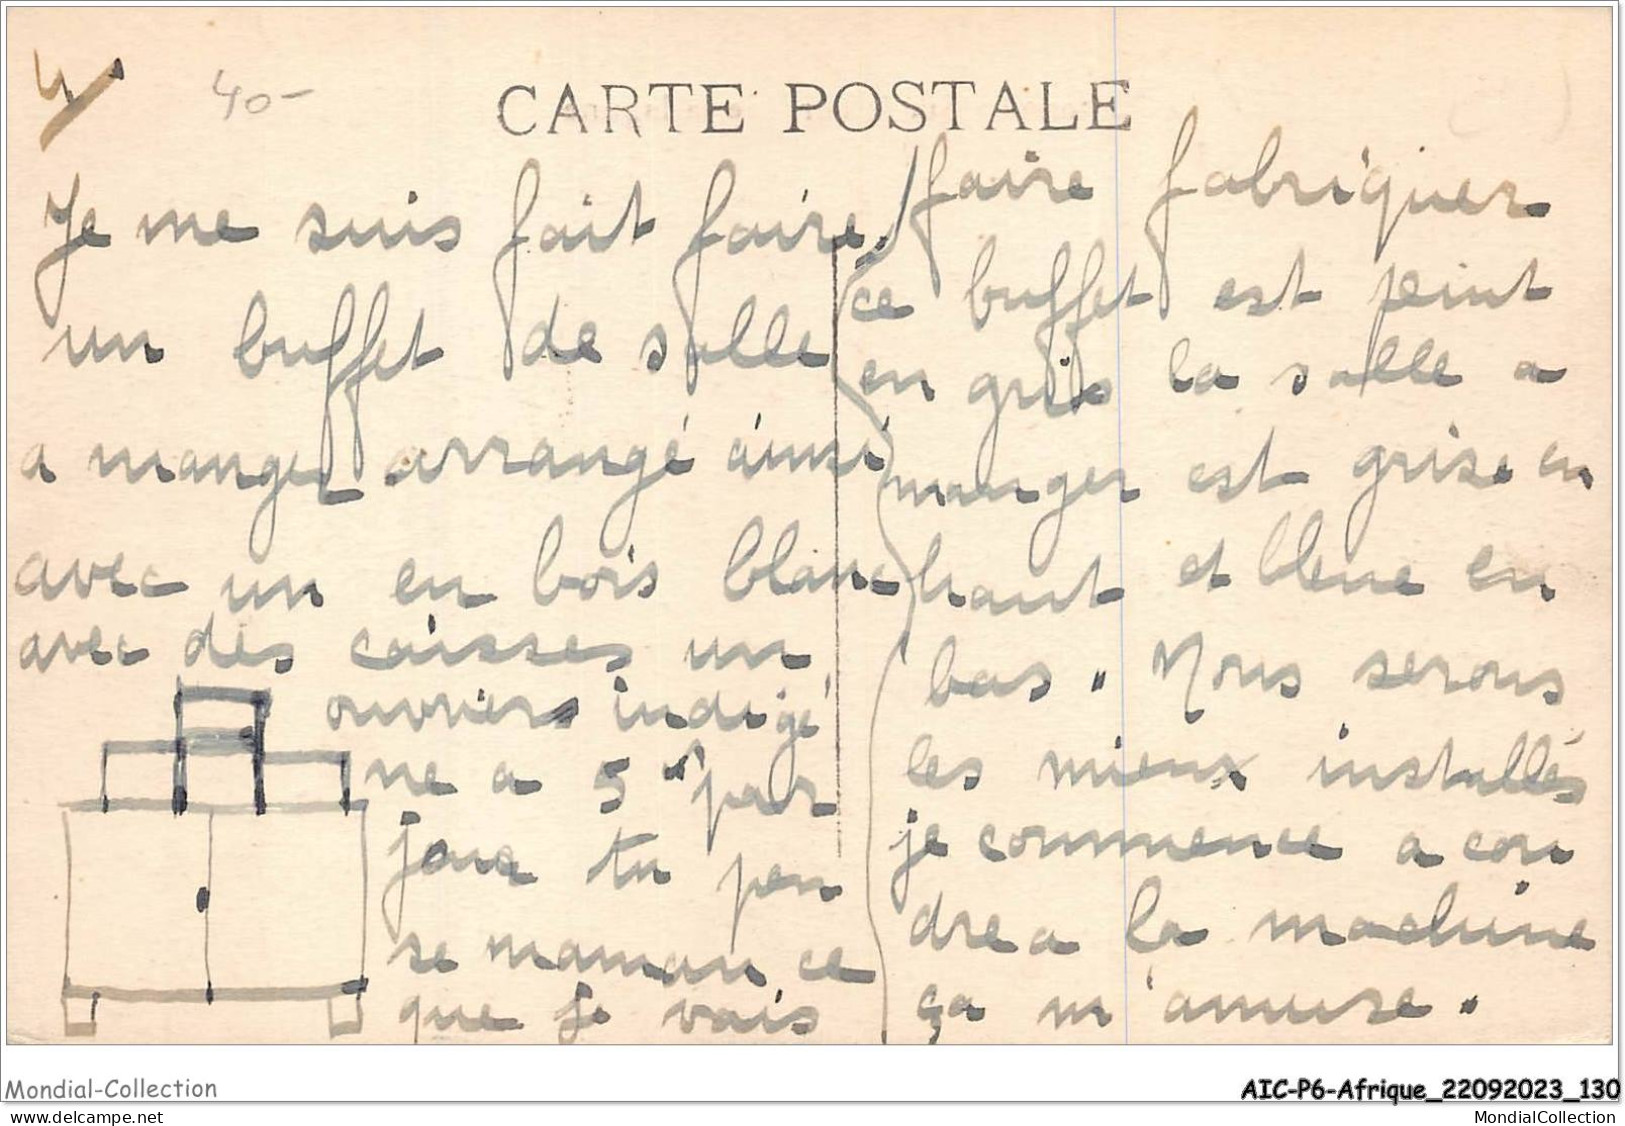 4/
40-
CARTE POSTALE
Je me suis fait faire
un buffet de salle
a manger arrangé ainsi
avec un en bois blanc
avec des caisses un
ouvriers indigé
ne a 5 par
jour tu pen
se maman ce
que je vais
faire fabriquer
ce buffet est peint
en gris la salle a
manger est grise en
haut et bleue en
bas. Nous serons
les mieux installés
je commence a cou
dre a la machine
ça m'amuse.
Mondial-Collection
www.delcampe.net
AIC-P6-Afrique_22092023_130
MondialCollection